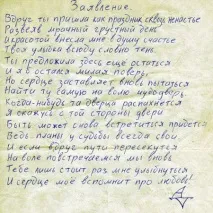 Заявление.
Вдруг ты пришла как праздник сквозь ненастье
Развеяв мрачный грустный день
И красотой внесла мне в душу счастье
Твоя улыбка всюду словно тень
Ты предложила здесь ещё остаться
И я б остался милая поверь
Но сердце заставляет вновь пытаться
Найти ту самую на волю чудо дверь
Когда-нибудь та дверца распахнётся
Я окажусь с той стороны двери
Быть может снова встретиться придётся
Ведь планы у судьбы всегда свои
И если вдруг пути пересекутся
На воле повстречаемся мы вновь
Тебе лишь стоит раз мне улыбнуться
И сердце моё вспомнит про любовь!